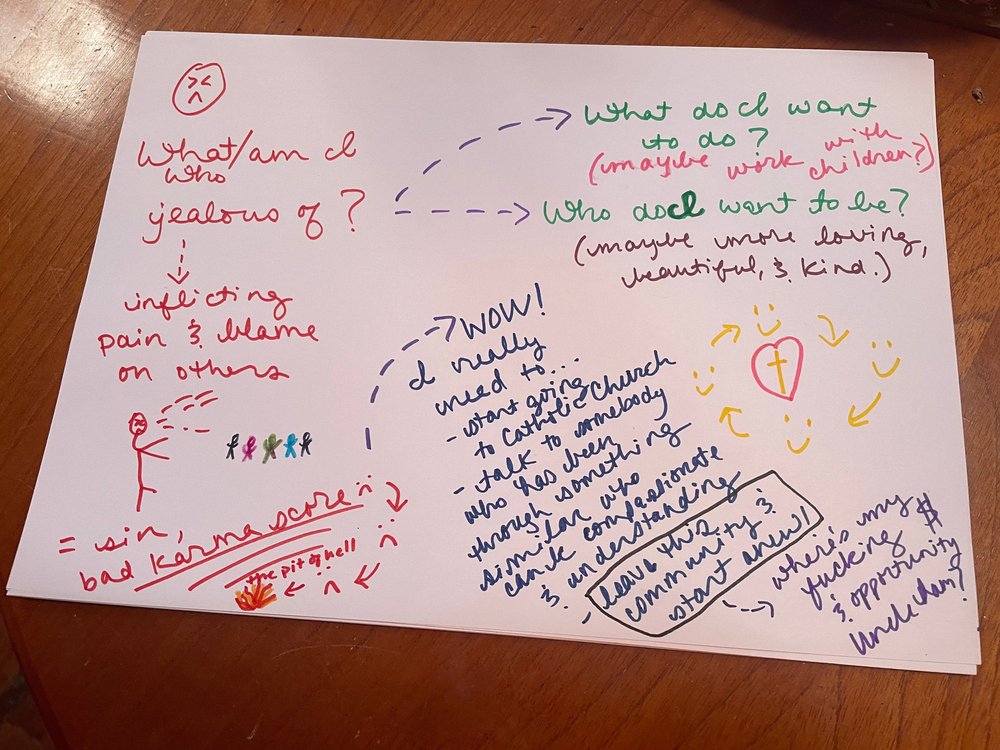 What/am I
who
jealous of?
inflicting
pain & blame
on others
= sin,
bad karma score
the pit of hell
What do I want
to do?
(maybe work with
children?)
Who do I want to be?
(maybe more loving,
beautiful, & kind.)
WOW!
I really
need to..
- start going
to Catholic Church
- talk to somebody
who has been
through something
similar who
can be compassionate
& understanding
- leave this
community &
start anew!
where's my
fucking $
& opportunity
Uncle Sam?